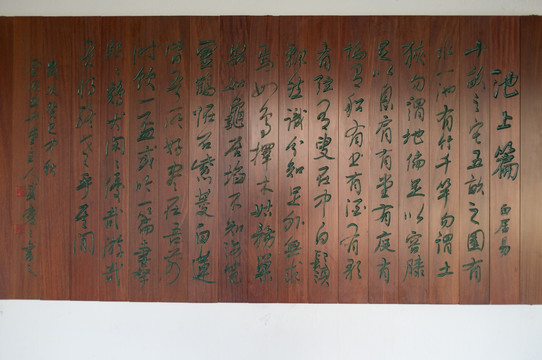 池上篇 白居易
十畝之宅五畝之園有
水一池有竹千竿勿謂土
狹勿謂地偏足以容膝
足以息肩有堂有庭有
橋有船有书有酒有歌
有弦有叟在中白鬚
飄然識分知足外無求
焉如鳥擇木姑務巢
安如龜居坎不知海寬
靈鶴怪石紫菱白蓮
皆吾所好盡在吾前
時飲一盃或吟一篇妻孥
熙熙鷄犬閑閑優哉游哉
吾將終老乎其間